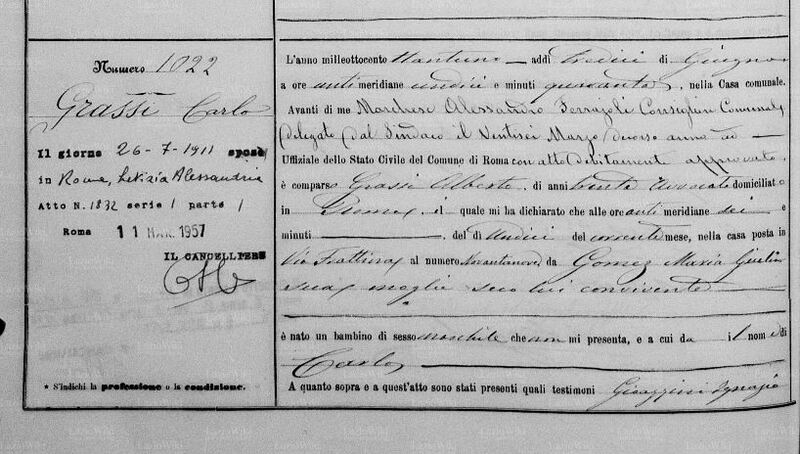 Numero 1022
Grassi Carlo
Il giorno 26-7-1911 sposò
in Roma, Letizia Alessandria
Atto N. 1832 serie 1 parte 1
Roma 11 MAR. 1957
IL CANCELLIERE
* S'indichi la professione o la condizione.
L'anno milleottocento ttantuno addì tredici di Giugno
a ore antimeridiane undici e minuti quaranta, nella Casa comunale.
Avanti di me Marchese Alessandro Ferrajoli Consigliere Comunale
Delegato dal Sindaco il Ventisei Marzo decorso anno ad
Uffiziale dello Stato Civile del Comune di Roma con atto debitamente approvato,
è comparso Grassi Alberto, di anni trenta Avvocato domiciliato
in Roma il quale mi ha dichiarato che alle ore antimeridiane sei e
minuti del dì undici del corrente mese, nella casa posta in
Via Frattina al numero Novantanove da Gomez Maria Giulia
sua moglie seco lui convivente
è nato un bambino di sesso maschile che non mi presenta, e a cui da il nome di
Carlo
A quanto sopra e a quest'atto sono stati presenti quali testimoni Ignazio